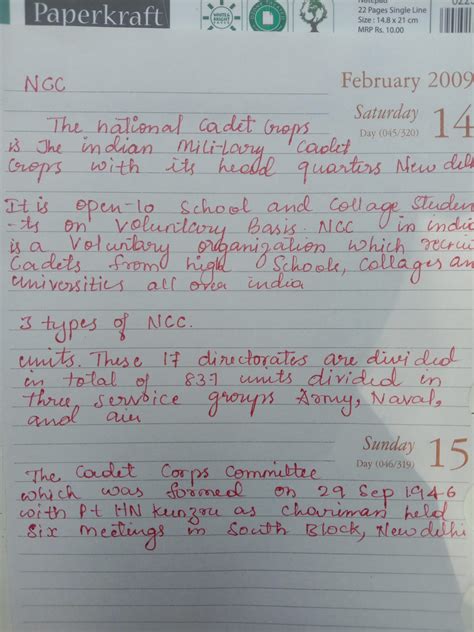 Paperkraft
WHITE &
BRIGHT
Notepad
22 Pages Single Line
Size : 14.8 x 21 cm
MRP Rs. 10.00
022
NCC
February 2009
Saturday
Day (045/320)
14
The national Cadet Crops
is The indian Mili-tary Cadet
Crops with its head quarters New delh
It is open-to School and Collage Studen
-ts on Voluntary Basis. NCC in india
is a Voluntary organization which recrui
Cadets from high Schools, Collages an
universities all over india
3 types of NCC.
units. These 17 directorates are divided
in total of 837 units divided in
three service groups Army, Naval,
and air
Sunday
Day (046/319)
15
The Cadet Corps Committee
which was formed on 29 Sep 1946
with Pt HN Kunzru as chariman held
six meetings in South Block, New delhi